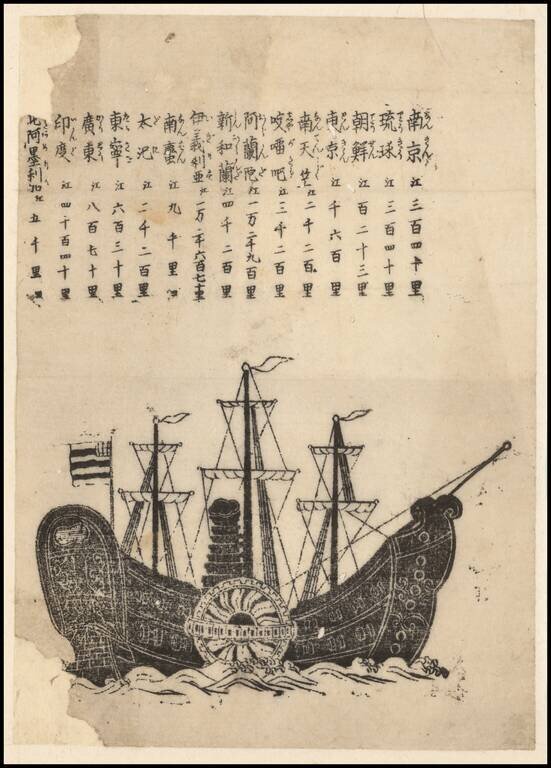 南京 江三百四十里
琉球 江三百四十里
朝鮮 江百二十三里
東京 江千六百里
南天竺 江二千二百里
咬𠺕吧 江三千二百里
阿蘭陀 江一万二千九百里
新和蘭 江四千二百里
伊義利亜 江一万二千六百七十里
南蠻 江九千里
太泥 江二千二百里
東寧 江六百三十里
廣東 江八百七十里
印度 江四千百四十里
北阿墨利加江 五千里